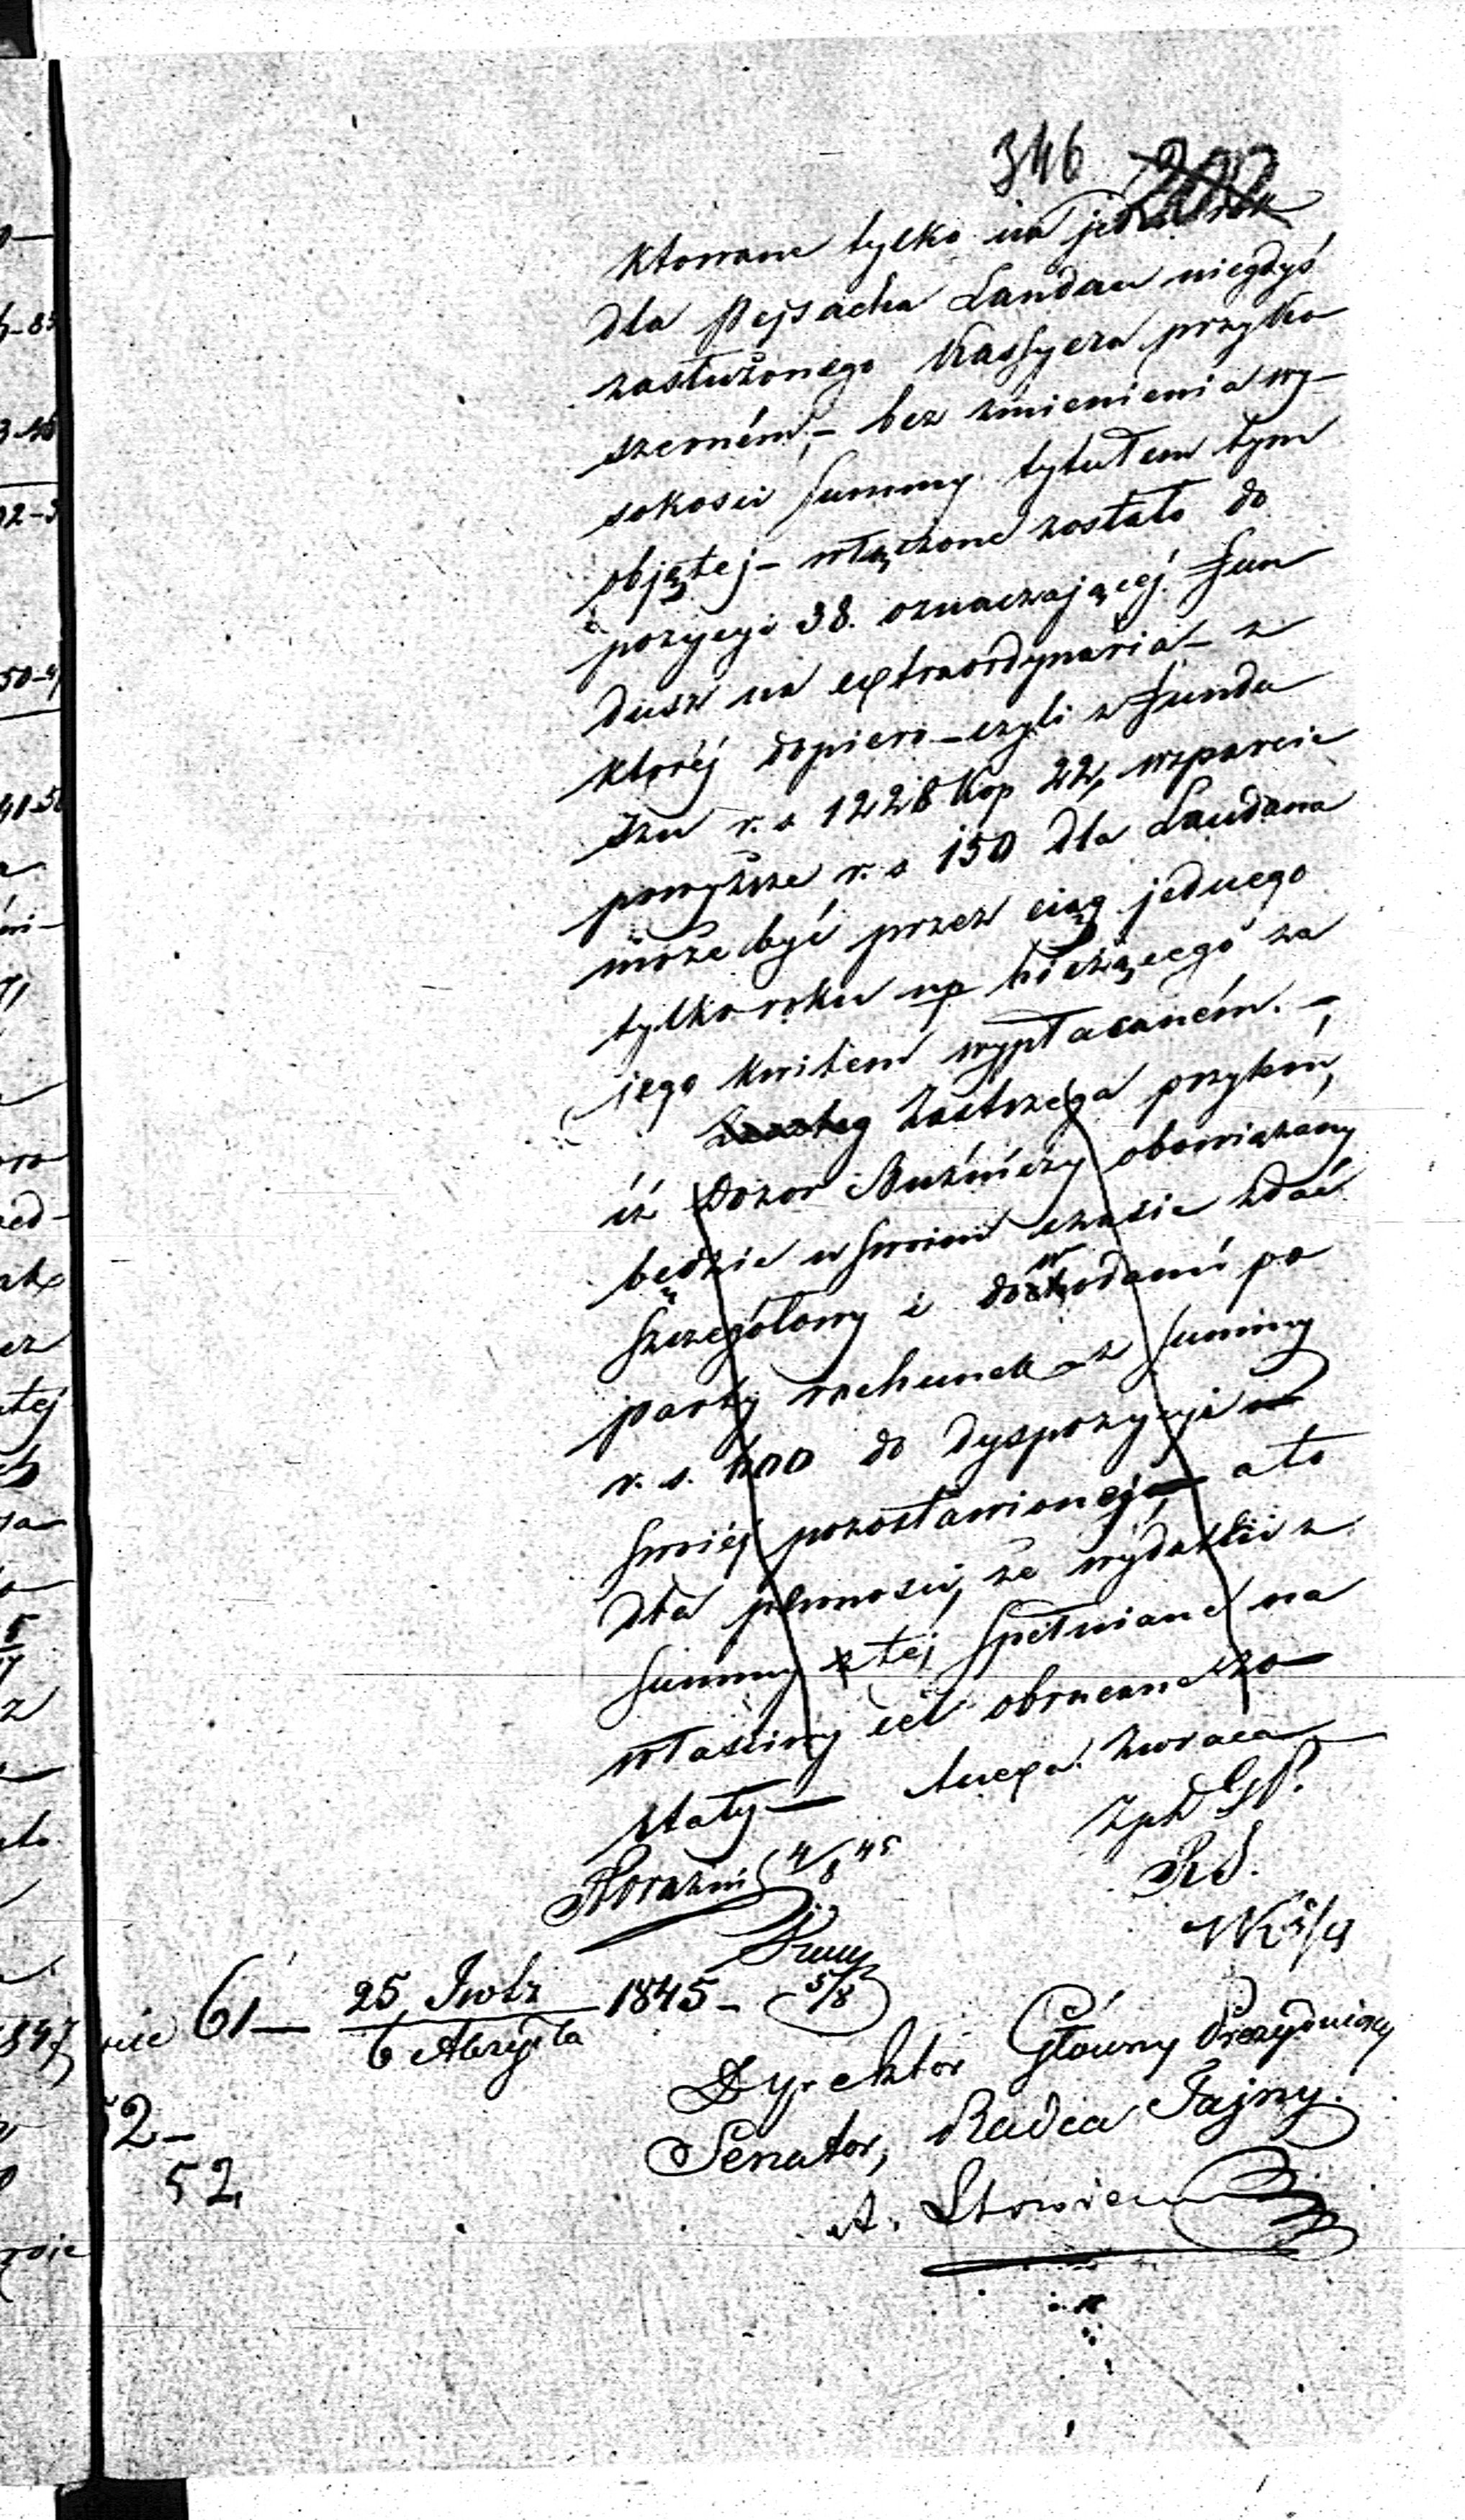 346 202
ktowane tylko na jeden rok
dla Pejsacha Landau niegdyś
zasłużonego Kassyera przy Ko
szerném, – bez zmienienia wy-
sokości summy tytułem tym
objętej – włączone zostało do
pozycyi 38. oznaczającéj Fun
dusz na extraordynaria – z
któréj dopiero – czyli z Fundu
szu r. s 1228 Kop 22, wsparcie
powyższe r. s 150 dla Landaua
może być przez ciąg jednego
tylko roku np bieżącego za
jego kwitem wypłacaném. –
Zastrzega przytém,
iż Dozor Bużniczy obowiązany
będzie w swoim czasie zdać
szczegółowy i dowodami po
party rachunek z summy
r. s. 600 do dyspozycyi
swéj pozostawionej, a to
dla pewności, że wydatki z
summy tej spełniane na
właściwy cel obracane zo
stały – Anexa zwraca
4/8 45
RS.
5/8
61 – 25 Lutz 1845 –
6 Marzca
Dyrektor Główny Prezydujący
Senator, Radca Tajny.
52 –
52
A.